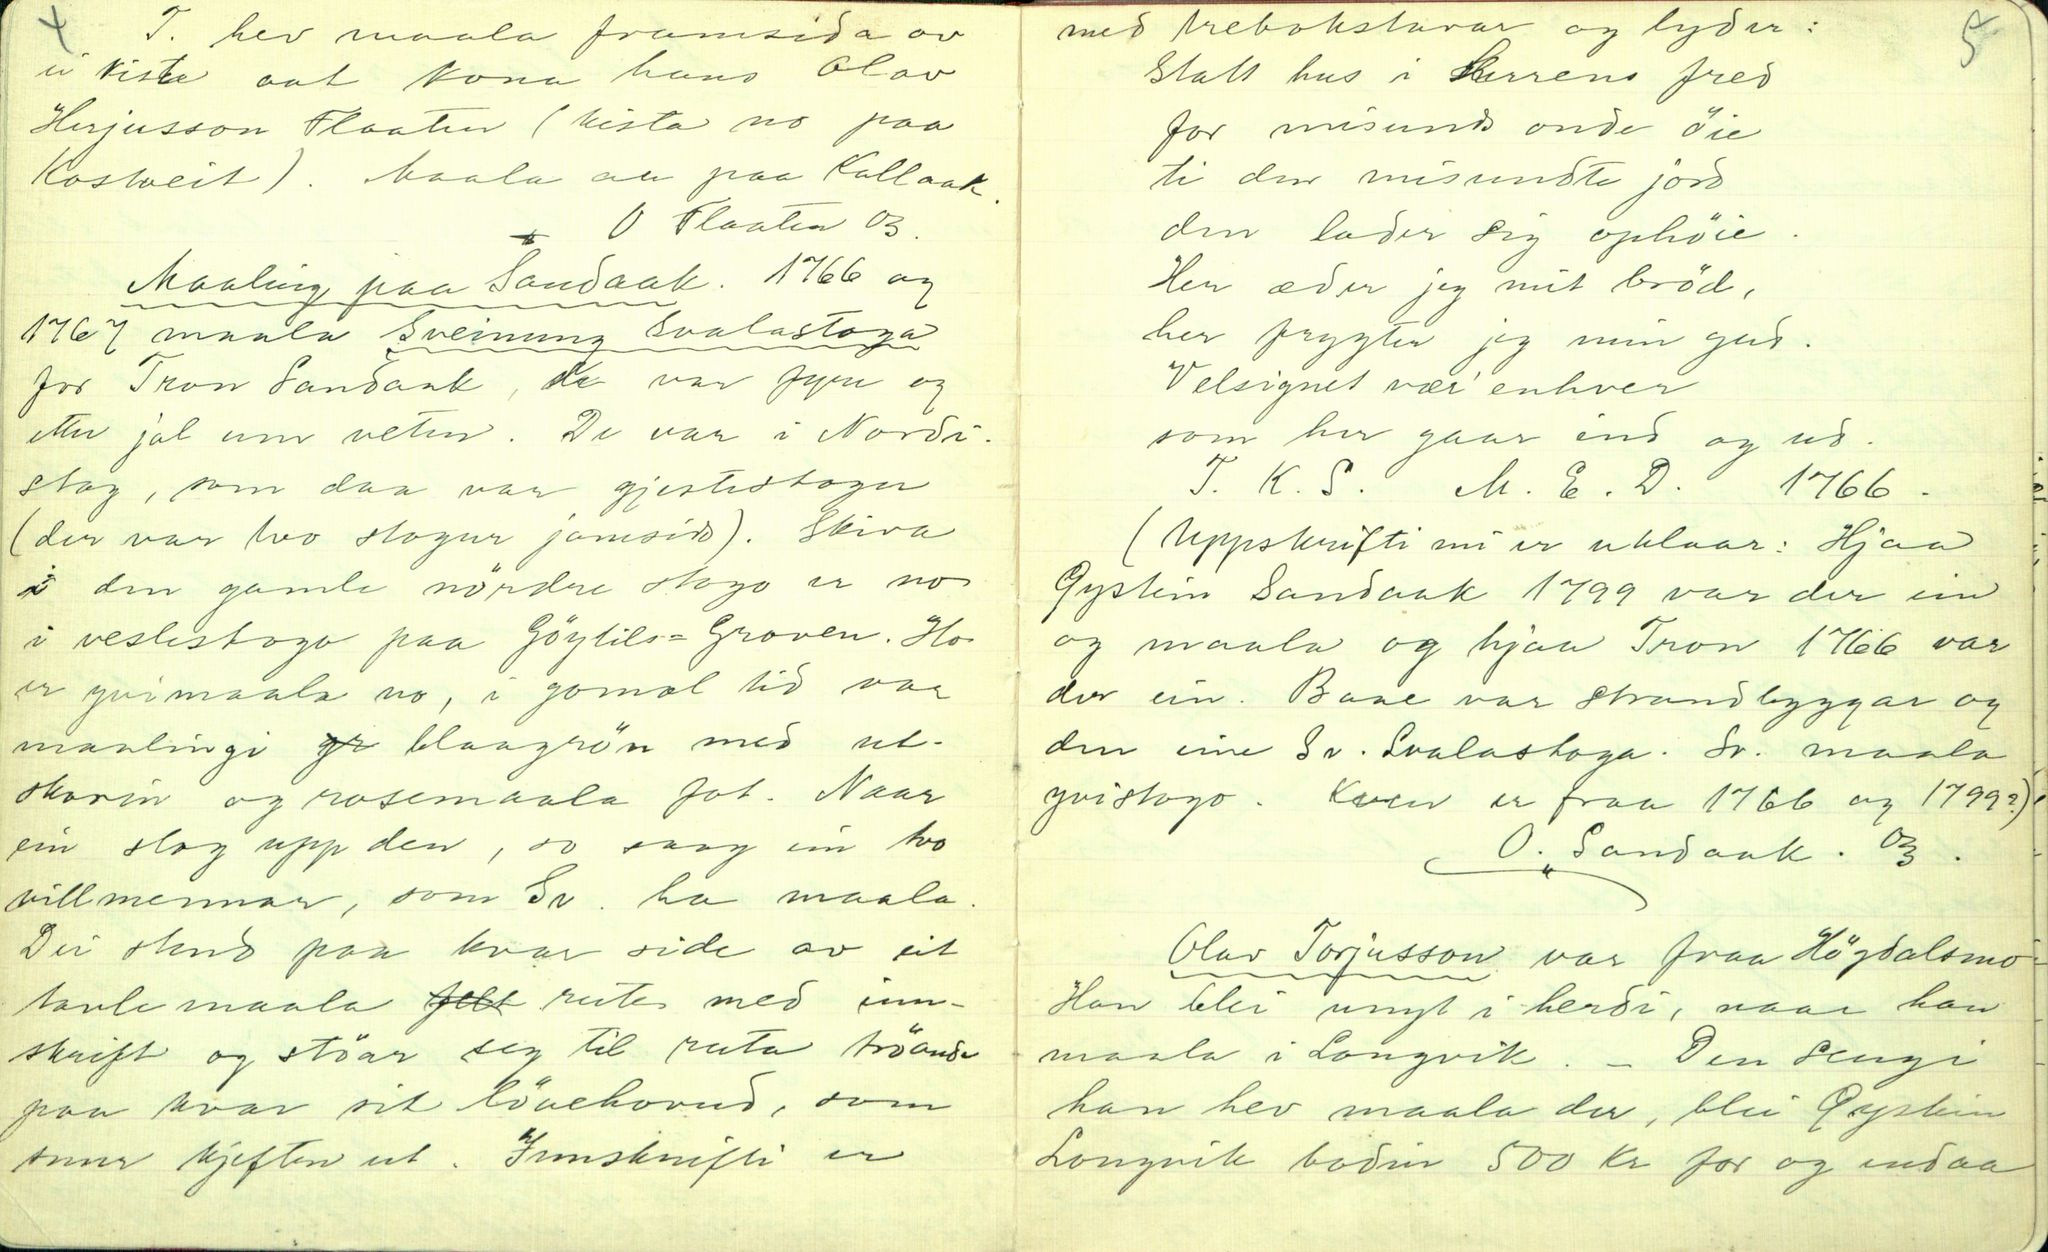 4
T. hev maala framsida av
ei kiste aat kona hans Olav
Herjusson Flaaten (kista no paa
Kostveit). Maala au paa Kallaak.
O Flaaten 03.
Maaling paa Sandaak. 1766 og
1767 maala Sveinung Svalastoga
for Tron Sandaak, de var fyre og
etter jol um veteren. De var i Nordi-
stog, som daa var gjestestoga
(der var two stogur jamsids). Skiva
i den gamle nördre stogo er no
i veslestogo paa Göytils-Groven. Ho
er yvimaala no, i gomal tid var
maalingi gr blaagrön med ut-
skorin og rosemaala fot. Naar
ein slog upp den, so saag ein two
villmennar, som Sv. ha maala.
Dei stend paa kvar side av eit
tavlemaala felt rute med inn-
skrift og stöar seg til ruta tröande
paa kvar sit lövehovud, som
snur kjeften ut. Innskrifti er
5
med trebokstavar og lyder:
Statt hus i Herrens fred
for misunds onde öie
ti den misundte jord
den lader sig ophöie.
Her æder jeg mit bröd,
her frygter jeg min gud.
Velsignet vær' enhver
som her gaar ind og ud.
T. K. S. M. E. D. 1766.
(Uppskrifti mi er uklaar: Hjaa
Öystein Sandaak 1799 var der ein
og maala og hjaa Tron 1766 var
der ein. Baae var strandbyggar og
den eine Sv. Svalastoga. Sv. maala
yvistogo. Kven er fraa 1766 og 1799?)
O. Sandaak. 03.
Olav Torjusson var fraa Högdalsmo
Han blei unyt i herdi, naar han
maala i Longvik. – Den sengi
han hev maala der, blei Öystein
Longvik bodin 500 kr for og endaa